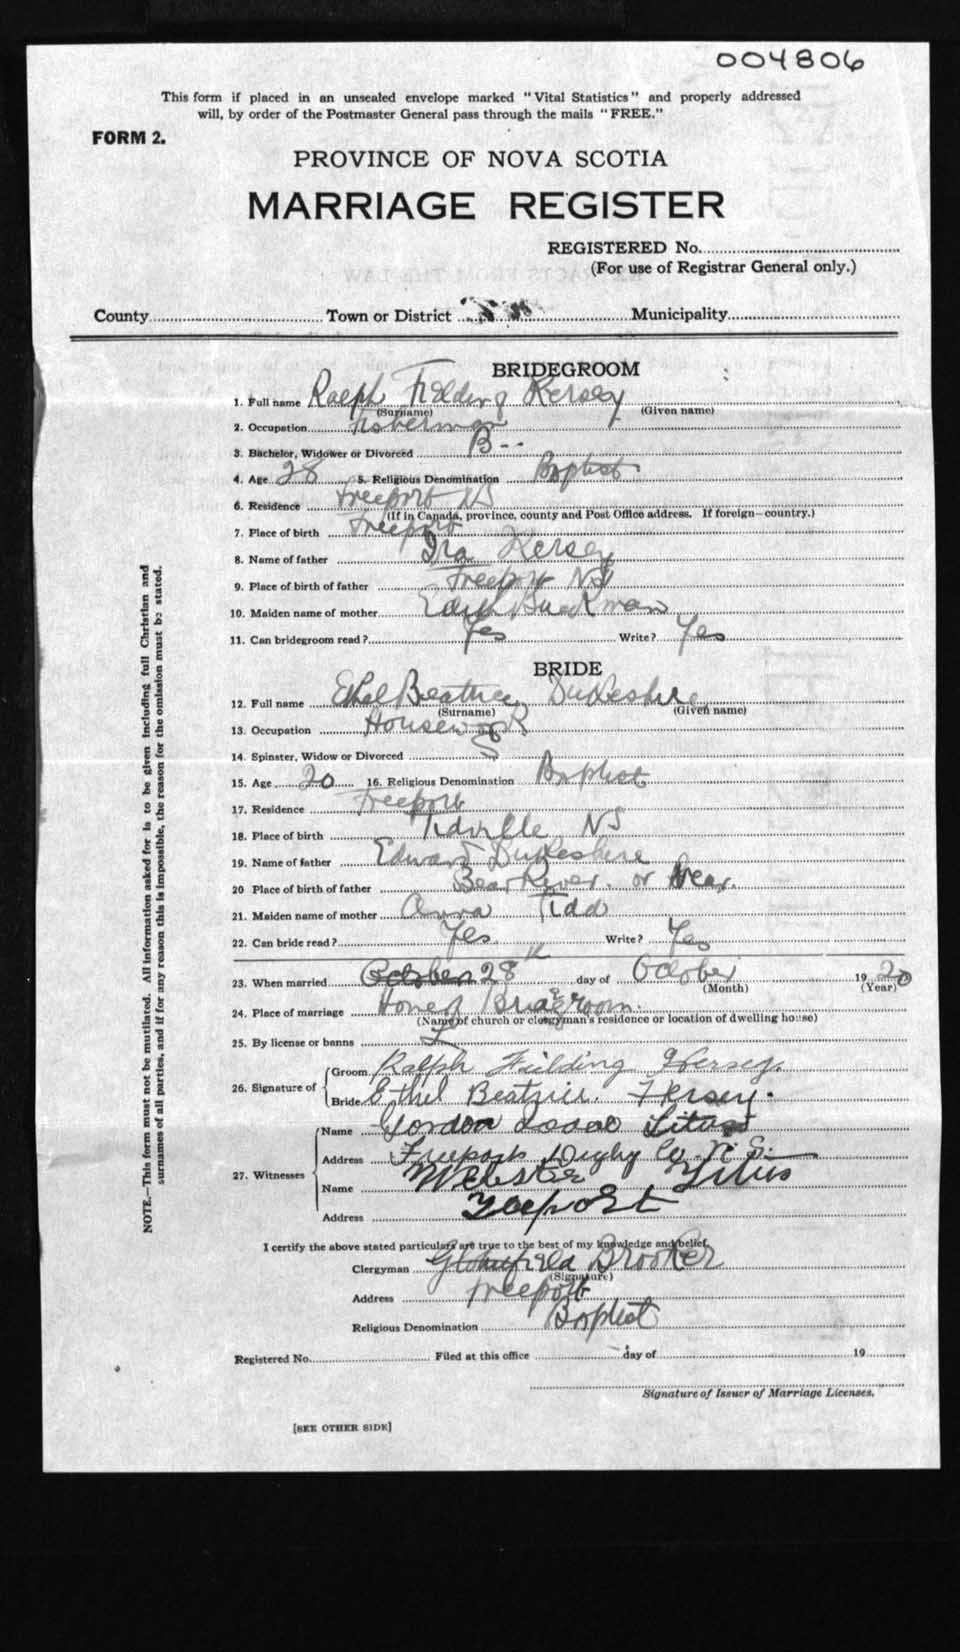 004806
This form if placed in an unsealed envelope marked "Vital Statistics" and properly addressed
will, by order of the Postmaster General pass through the mails "FREE."
FORM 2.
PROVINCE OF NOVA SCOTIA
MARRIAGE REGISTER
REGISTERED No.
(For use of Registrar General only.)
County Town or District Municipality
BRIDEGROOM
1. Full name Ralph Fielding Kersey
(Surname) (Given name)
2. Occupation Fisherman
3. Bachelor, Widower or Divorced B--
4. Age 28 5. Religious Denomination Baptist
6. Residence Freeport NS
(If in Canada, province, county and Post Office address. If foreign—country.)
7. Place of birth Freeport
8. Name of father Ira Kersey
9. Place of birth of father Freeport NS
10. Maiden name of mother Edith Buckman
11. Can bridegroom read? Yes Write? Yes
BRIDE
12. Full name Ethel Beatrice Dukeshire
(Surname) (Given name)
13. Occupation Housework
14. Spinster, Widow or Divorced S
15. Age 20 16. Religious Denomination Baptist
17. Residence Freeport
18. Place of birth Tidville NS
19. Name of father Edward Dukeshire
20 Place of birth of father Bear River. or near.
21. Maiden name of mother Anna Tidd
22. Can bride read? Yes Write? Yes
23. When married October 28th day of October 1920
(Month) (Year)
24. Place of marriage Home of Bridegroom.
(Name of church or clergyman's residence or location of dwelling house)
25. By license or banns L
26. Signature of Groom Ralph Fielding Kersey.
Bride Ethel Beatrice. Kersey.
27. Witnesses
Name Gordon Isaac Titus
Address Freeport Digby Co. N. S.
Name Webster Titus
Address Freeport
I certify the above stated particulars are true to the best of my knowledge and belief.
Clergyman Brooker
(Signature)
Address Freeport
Religious Denomination Baptist
Registered No. Filed at this office day of 19
Signature of Issuer of Marriage Licenses.
[SEE OTHER SIDE]
NOTE.—This form must not be mutilated. All information asked for is to be given including full Christian and
surnames of all parties, and if for any reason this is impossible, the reason for the omission must be stated.